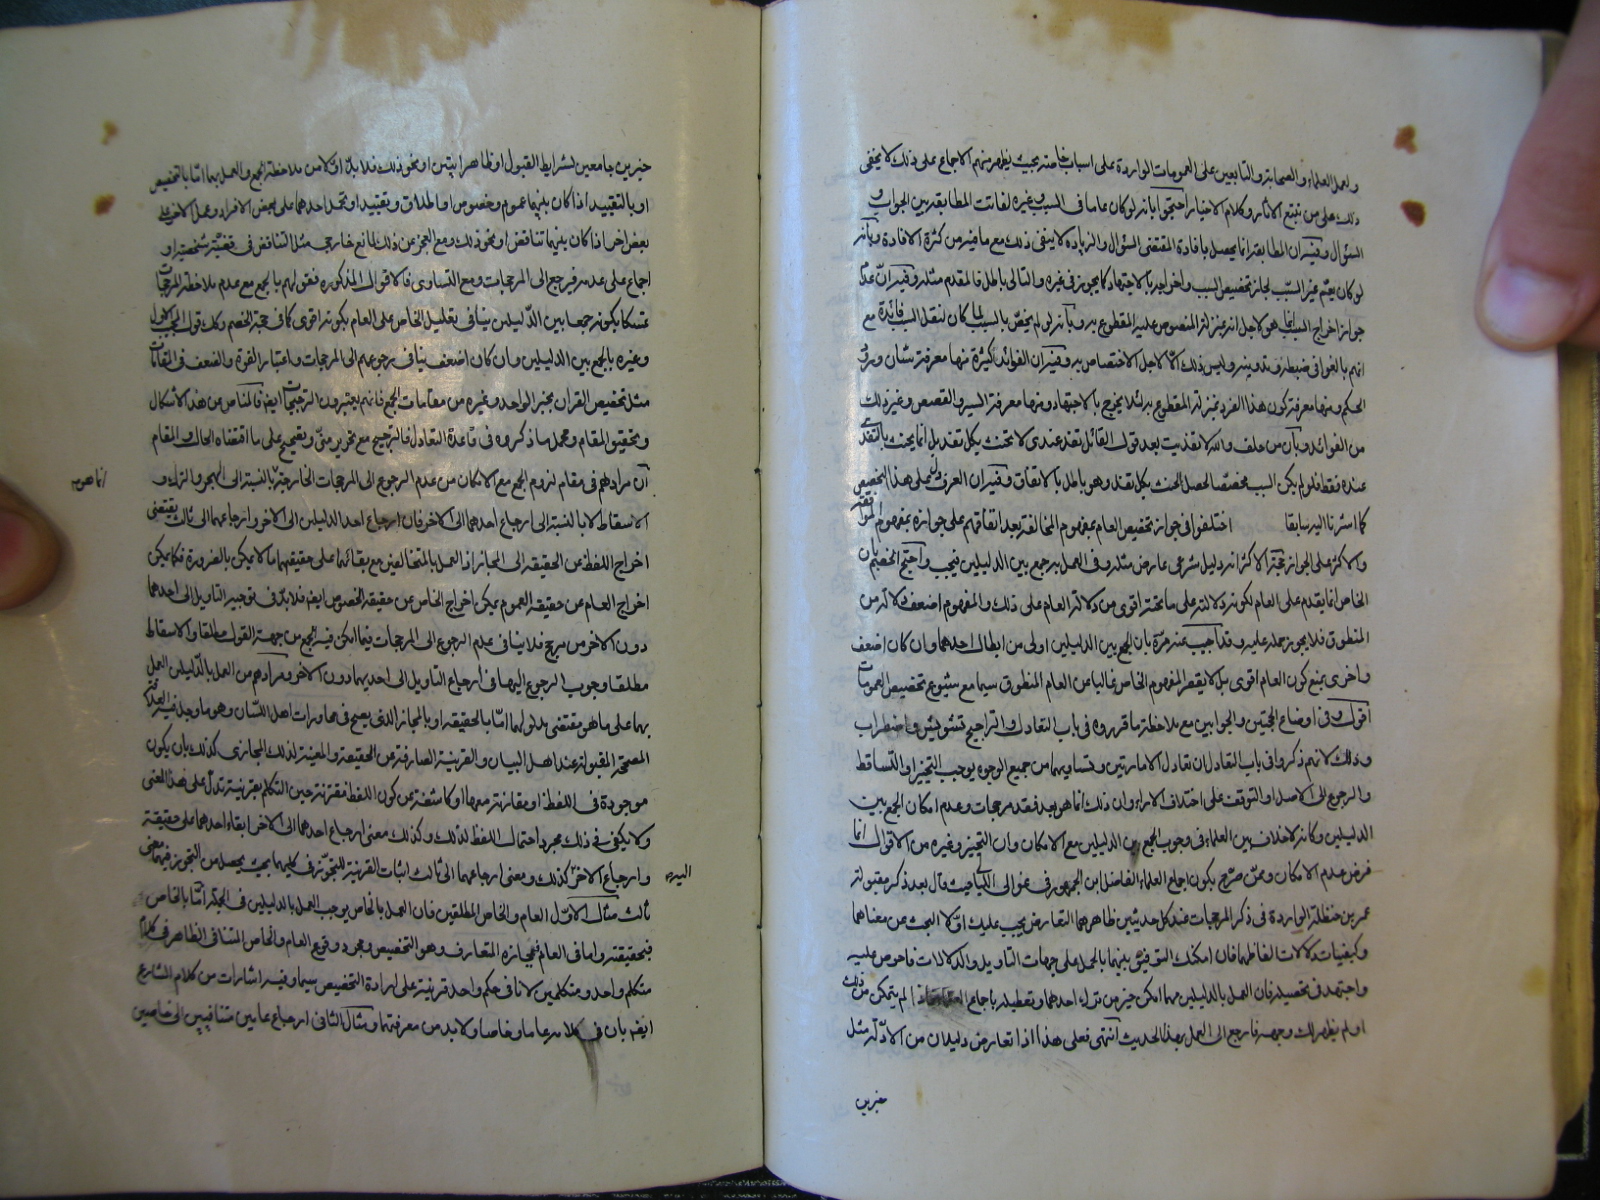 ولعمل العلماء والصحابة والتابعين على العمومات الواردة على اسباب خاصة بحيث يظهر منهم الاجماع على ذلك كما لا يخفى
ذلك على من تتبع الاثار وكلام الاخيار احتجوا بانه لو كان عاما في السبب وغيره لفاتت المطابقة بين الجواب و
السؤال وفيه ان المطابقة انما يحصل بافادة المقتضى السؤال والزيادة لا ينفى ذلك مع ما فيه من كثرة الافادة وبانه
لو كان يعم غير السبب لجاز تخصيص السبب واخراجه بالاجتهاد كما يجوز في غيره والتالي باطل فالمقدم مثله وفيه ان عدم
جواز اخراج السبب انما هو لاجل انه بمنزلة المنصوص عليه المقطوع به وبانه لو لم يخص بالسبب لما كان لنقل السبب فائدة مع
انهم بالغوا في ضبطه وتدوينه وليس ذلك الا لاجل الاختصاص به وفيه ان الفوائد كثيرة منها معرفة شان ورود
الحكم ومنها معرفة كون هذا الفرد بمنزلة المقطوع به لئلا يخرج بالاجتهاد ومنها معرفة السير والقصص وغير ذلك
من الفوائد وبان من حلف والله لا تغديت بعد قول القائل تغد عندي لا تحنث بكل تغدي بل انما يحنث بالتغدي
عنده فقط فلو لم يكن السبب مخصصا لحصل الحنث بكل تغد وهو باطل بالاتفاق وفيه ان العرف دل على هذا التخصيص
كما اشرنا اليه سابقا اختلفوا في جواز تخصيص العام بمفهوم المخالفة بعد اتفاقهم على جوازه بمفهوم الموافقة
والاكثر على الجواز حجة الاكثر انه دليل شرعي عارض مثله وفي العمل به جمع بين الدليلين فيجب واحتج الخصم بان
الخاص انما يقدم على العام لكونه دلالته على ما تحته اقوى من دلالة العام على ذلك والمفهوم اضعف دلالة من
المنطوق فلا يجوز حمله عليه وقد اجيب عنه مرة بان الجمع بين الدليلين اولى من ابطال احدهما وان كان اضعف
واخرى بمنع كون العام اقوى بل لا يقصر المفهوم الخاص غالبا عن العام المنطوق سيما مع شيوع تخصيص العمومات
اقول وفي اوضاع الحجتين والجوابين مع ملاحظة ما قرروه في باب التعادل والتراجيح تشويش واضطراب
وذلك لانهم ذكروا في باب التعادل ان تعادل الامارتين وتساويهما من جميع الوجوه يوجب التخيير او التساقط
والرجوع الى الاصل او التوقف على اختلاف الاراء وان ذلك انما هو بعد فقد مرجحات وعدم امكان الجمع بين
الدليلين وكانه لا خلاف بين العلماء في وجوب الجمع بين الدليلين مع الامكان وان التخيير وغيره من الاقوال انما
فرض عدم الامكان وممن صرح بكون اجماع العلماء الفاضل ابن الجمهور في عوالي اللئالي حيث قال بعد ذكر مقبولة
عمر بن حنظلة الواردة في ذكر المرجحات عند كل حديثين ظاهرهما التعارض يجب عليك اولا البحث عن معناهما
وكيفيات دلالات الفاظهما فان امكنك التوفيق بينهما بالحمل على جهات التاويل والدلالات فاحرص عليه
واجتهد في تحصيله فان العمل بالدليلين مهما امكن خير من ترك احدهما وتعطيله باجماع العلماء فاذا لم يتمكن من ذلك
او لم يظهر لك وجهه فارجع الى العمل بهذا الحديث انتهى فعلى هذا اذا تعارض دليلان من الادلة مثل
خبرين
خبرين جامعين لشرايط القبول او ظاهر ايتين او نحو ذلك فلا بد اولا من ملاحظة الجمع والعمل بهما اما بالتخصيص
او بالتقييد اذا كان بينهما عموم وخصوص او اطلاق وتقييد او تحمل احدهما على بعض الافراد وعمل الاخر على
بعض اخر اذا كان بينهما تناقض او نحو ذلك ومع العجز عن ذلك لمانع خارجي مثل التناقض في قضية شخصية او
اجماع على عدمه فيرجع الى المرجحات ومع التساوي فالاقوال المذكورة فقولهم بالجمع مع عدم ملاحظة المرجحات
تمسكا بكونه جمعا بين الدليلين ينافي تعليل الخاص على العام بكونه اقوى كما في حجة الخصم وكذلك قول المجيب الاول
وغيره بالجمع بين الدليلين وان كان اضعف ينافي رجوعهم الى المرجحات واعتبار القوة والضعف في المقامات
مثل تخصيص القران بخبر الواحد وغيره من مقامات الجمع فانهم يعتبرون الترجيحات ايضا فالمناص من هذا الاشكال
وتحقيق المقام ومحمل ما ذكروه في قاعدة التعادل والترجيح مع تحرير مني وتقيح على ما اقتضاه الحال والمقام
ان مرادهم في مقام لزوم الجمع مع الامكان من عدم الرجوع الى المرجحات الخارجية بالنسبة الى الهجر والترك و
انما هو
الاسقاط لا بالنسبة الى ارجاع احدهما الى الاخر فان ارجاع احد الدليلين الى الاخر وارجاعهما الى ثالث يقتضي
اخراج اللفظ عن الحقيقة الى المجاز اذ العمل بالمتخالفين مع بقائهما على حقيقتهما ما لا يمكن بالضرورة فكما يمكن
اخراج العام عن حقيقة العموم يمكن اخراج الخاص عن حقيقة الخصوص ايضا فلا بد في توجيه التاويل الى احدهما
دون الاخر من مرجح فلا ينافي عدم الرجوع الى المرجحات فيما امكن فيه الجمع من جهة القول مطلقا والاسقاط
مطلقا وجوب الرجوع اليها في ارجاع التاويل الى احديهما دون الاخر ومرادهم من العمل بالدليلين العمل
بهما على ما هو مقتضى مدلولهما اما بالحقيقة او بالمجاز الذي يصح في محاورات اهل اللسان وهو ما وجد فيه العلاقة
المصححة المقبولة عند اهل البيان والقرينة الصارفة عن الحقيقة والمعينة لذلك المجازي كذلك بان يكون
موجودة في اللفظ او مقارنة معها او كاشفة عن كون اللفظ مقترنة حين التكلم بقرينة تدل على هذا المعنى
ولا يكفي في ذلك مجرد احتمال اللفظ لذلك وكذلك معنى ارجاع احدهما الى الاخر ابقاء احدهما على حقيقته
وارجاع الاخر كذلك ومعنى ارجاعهما الى ثالث اثبات القرينة للتجوز في كليهما بحيث يحصل من التجوز فيهما معنى
اليه
ثالث مثال الاول العام والخاص المطلقين فان العمل بالخاص يوجب العمل بالدليلين في الجملة اما بالخاص
فبحقيقته واما في العام فبمجازه المتعارف وهو التخصيص ومجرد وقوع العام والخاص المتنافي الظاهر في كلام
متكلم واحد ومتكلمين لانا في حكم واحد قرينة على ارادة التخصيص سيما وفيه اشارات من كلام الشارع
ايضا بان في كلامه عاما وخاصا ولا بد من معرفتهما ومثال الثاني ارجاع عامين متنافيين الى خاصين